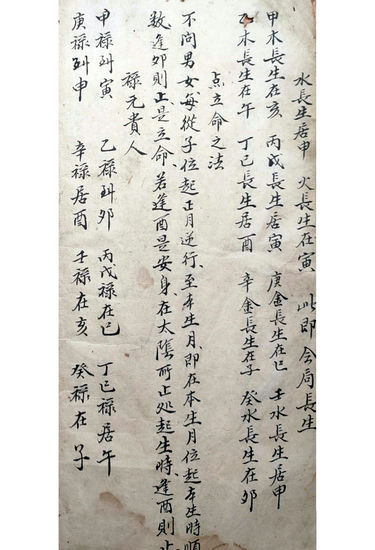 水長生居申 火長生在寅 此即会局長生
甲木長生在亥 丙戊長生居寅 庚金長生在巳 壬水長生居申
乙木長生在午 丁己長生居酉 辛金長生在子 癸水長生在卯
点立命之法
不问男女每從子位起正月逆行至本生月即在本生月位起本生時順
数逢卯則止是立命若逢酉是安身在太陰所止处起生時逢酉則止
禄元貴人
甲禄到寅 乙禄到卯 丙戊禄在巳 丁己禄居午
庚禄到申 辛禄居酉 壬禄在亥 癸禄在子